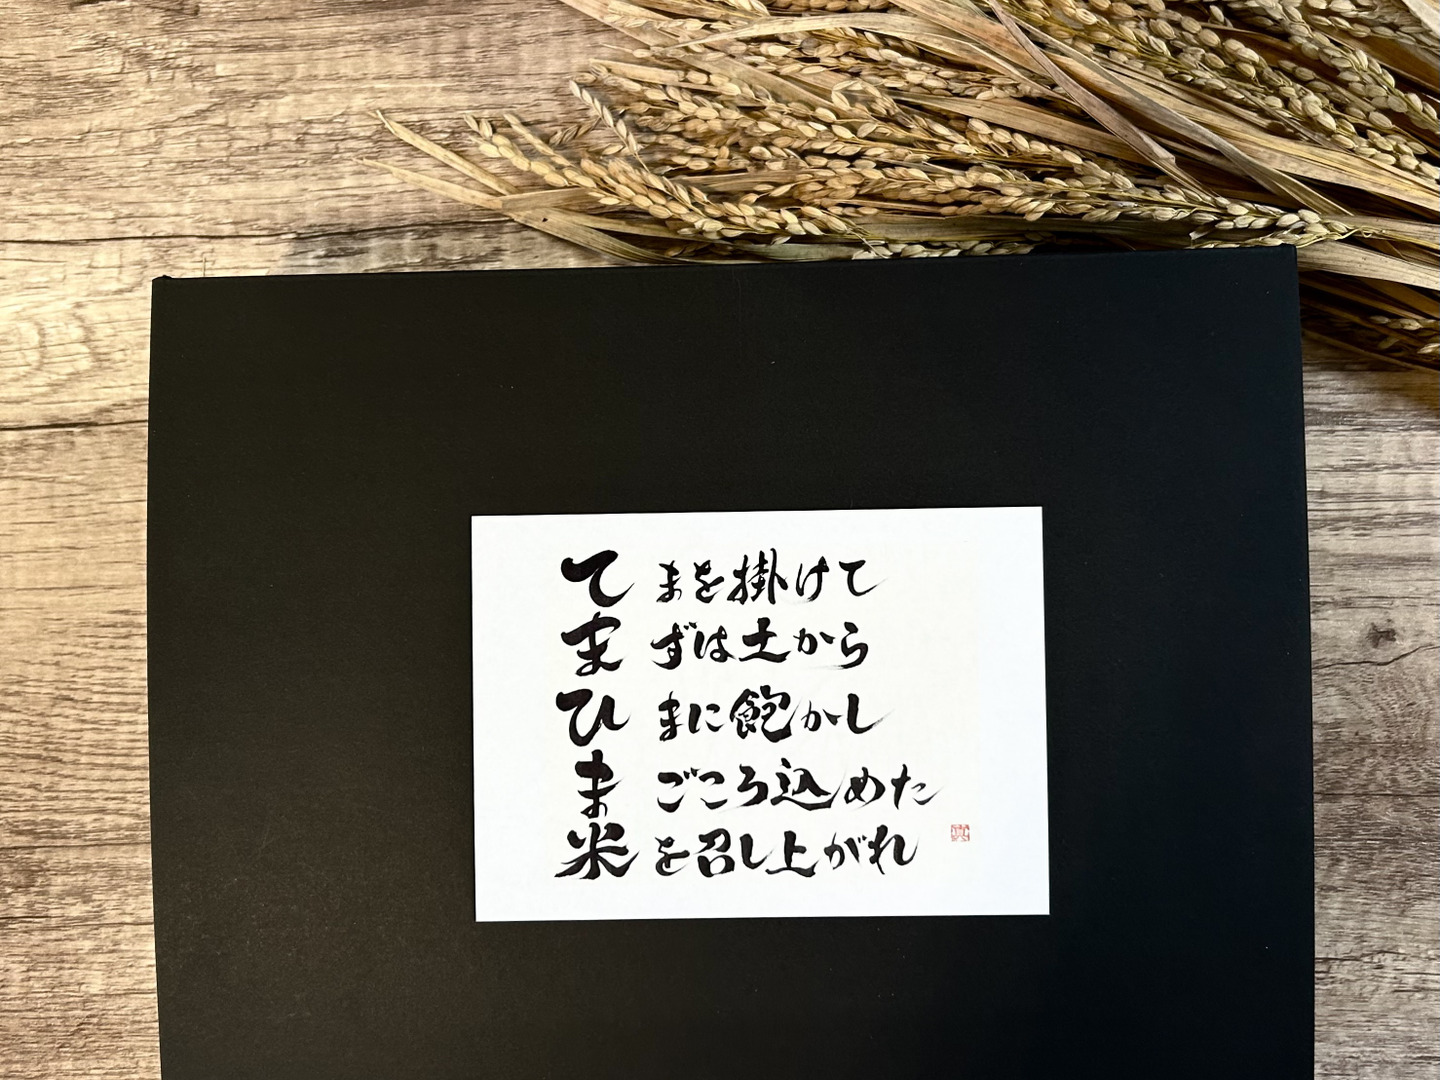 てまを掛けて
まずは土から
ひまに飽かし
まごころ込めた
米を召し上がれ
真